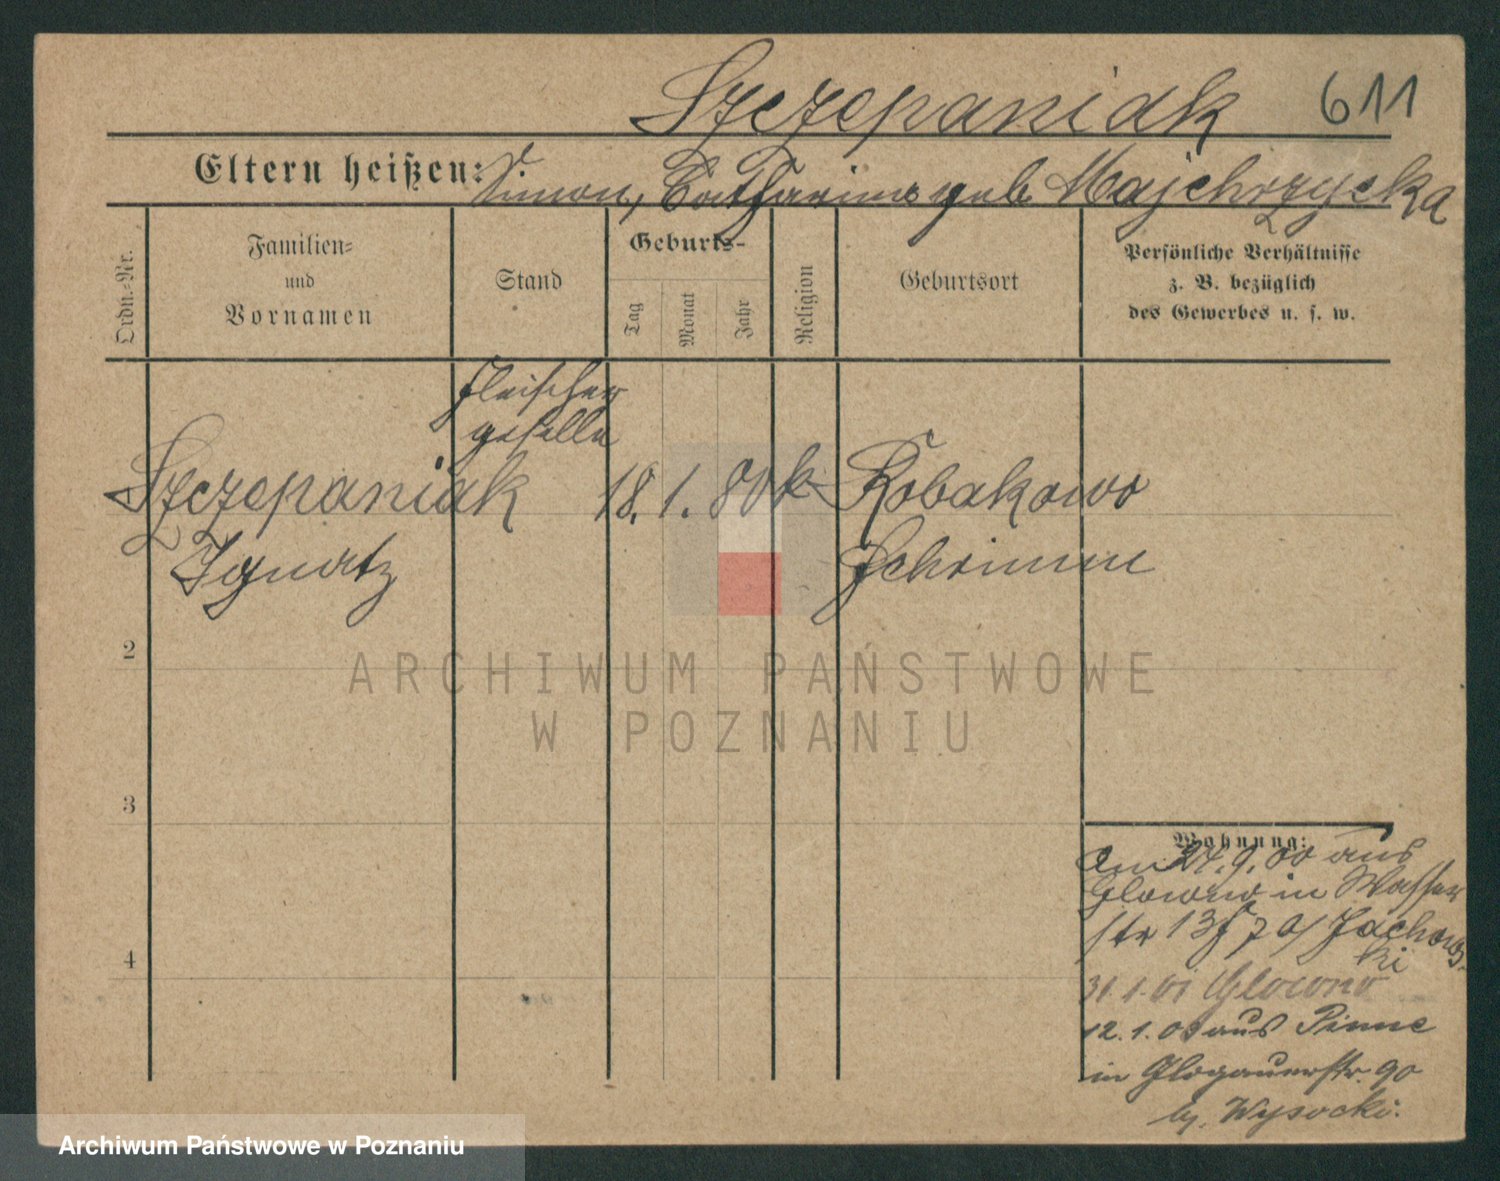 Szczepaniak 611
Eltern heißen: Simon, Catharina geb Majchrzycka
Ordn.-Nr.
Familien-
und
Vornamen
Stand
Geburts-
Tag
Monat
Jahr
Religion
Geburtsort
Persönliche Verhältnisse
z. B. bezüglich
des Gewerbes u. s. w.
Fleischer
geselle
Szczepaniak 18. 1. 80 k. Robakowo
Ignatz Schrimm
2
ARCHIWUM PAŃSTWOWE
W POZNANIU
3
Wohnung:
Am 24.9.00 aus
Glowno in Wasser
str 13
4
31.1.01 Glowno
12.1. aus Pinne
in Glogauerstr. 90
b. Wysocki.
Archiwum Państwowe w Poznaniu